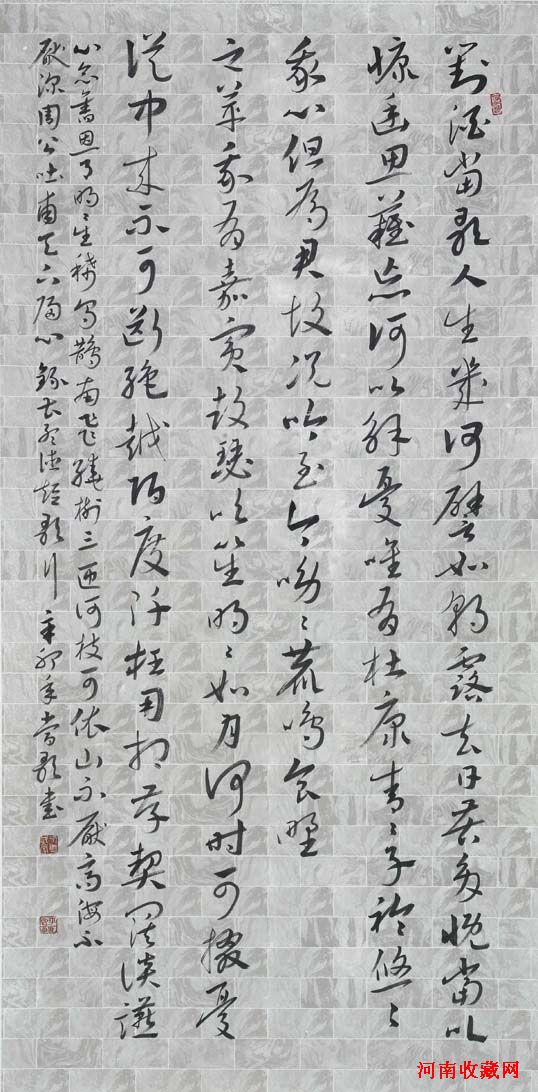 對酒當歌人生幾何譬如朝露去日苦多慨當以
慷幽思難忘何以解憂唯有杜康青〻子衿悠〻
我心但為君故沉吟至今呦〻鹿鳴食野
之苹我有嘉賓鼓瑟吹笙明〻如月何时可掇憂
從中來不可斷絕越陌度阡枉用相存契闊談讌
心念舊恩月明星稀烏鵲南飛繞樹三匝何枝可依山不厭高海不
厭深周公吐哺天下歸心錄孟德短歌行辛卯年書
河南收藏网